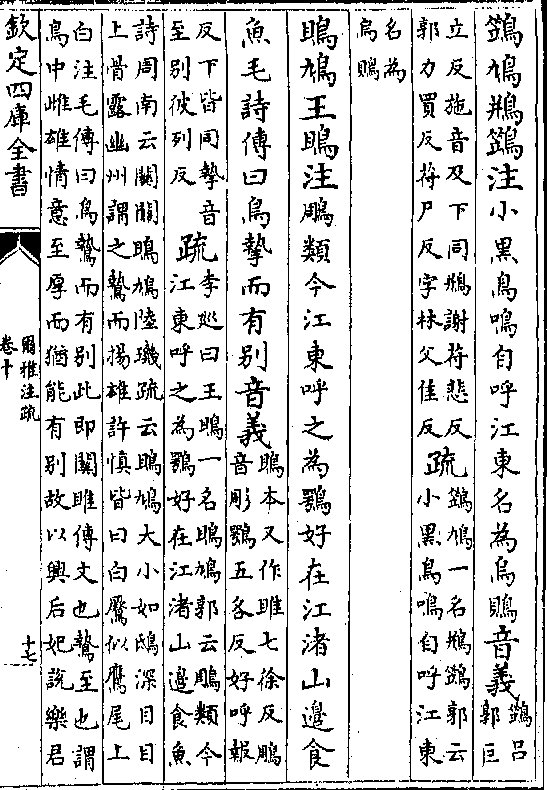 鷑鳩鵧鷑注小黑鳥鳴自呼江東名為烏鵖音義鷑吕
郭巨
立反施音及下同鵧謝苻悲反
郭力買反苻尸反字林父佳反
疏鷑鳩一名鵧鷑郭云
小黑鳥鳴自呼江東
名為
烏鵖
鴡鳩王鴡注鵰類今江東呼之為鶚好在江渚山邊食
魚毛詩傳曰鳥摯而有别音義鴡本又作雎七徐反鵰
音彫鶚五各反好呼報
反下皆同摯音
至别彼列反
疏李廵曰王鴡一名鴡鳩郭云鵰類今
江東呼之為鶚好在江渚山邊食魚
詩周南云關關鴡鳩陸璣疏云鴡鳩大小如鴟深目目
上骨露幽州謂之鷙而揚雄許慎皆曰白鷢似鷹尾上
白注毛傳曰鳥鷙而有别此即關雎傳文也鷙至也謂
鳥中雌雄情意至厚而猶能有别故以興后妃說樂君
欽定四庫全書
爾雅注疏
卷十
十七